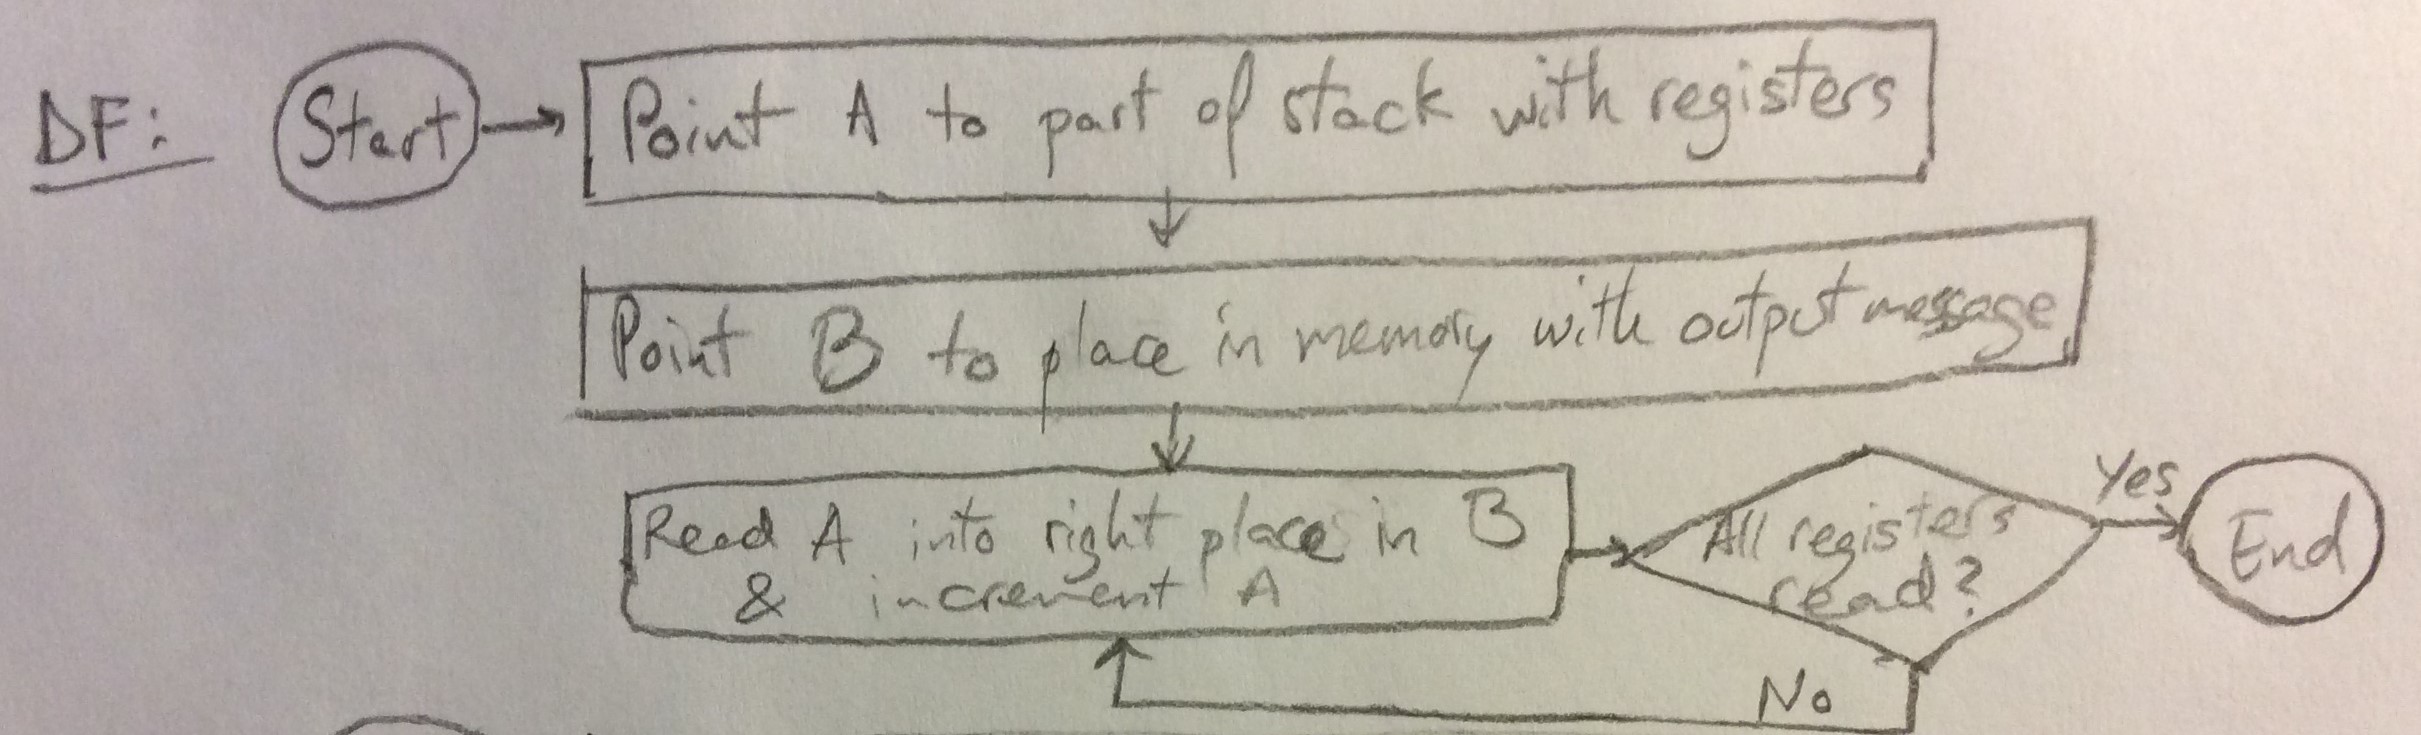 DF: Start Point A to part of stack with registers
Point B to place in memory with output message
Read A into right place in B
& increment A
All registers
read?
Yes
End
No